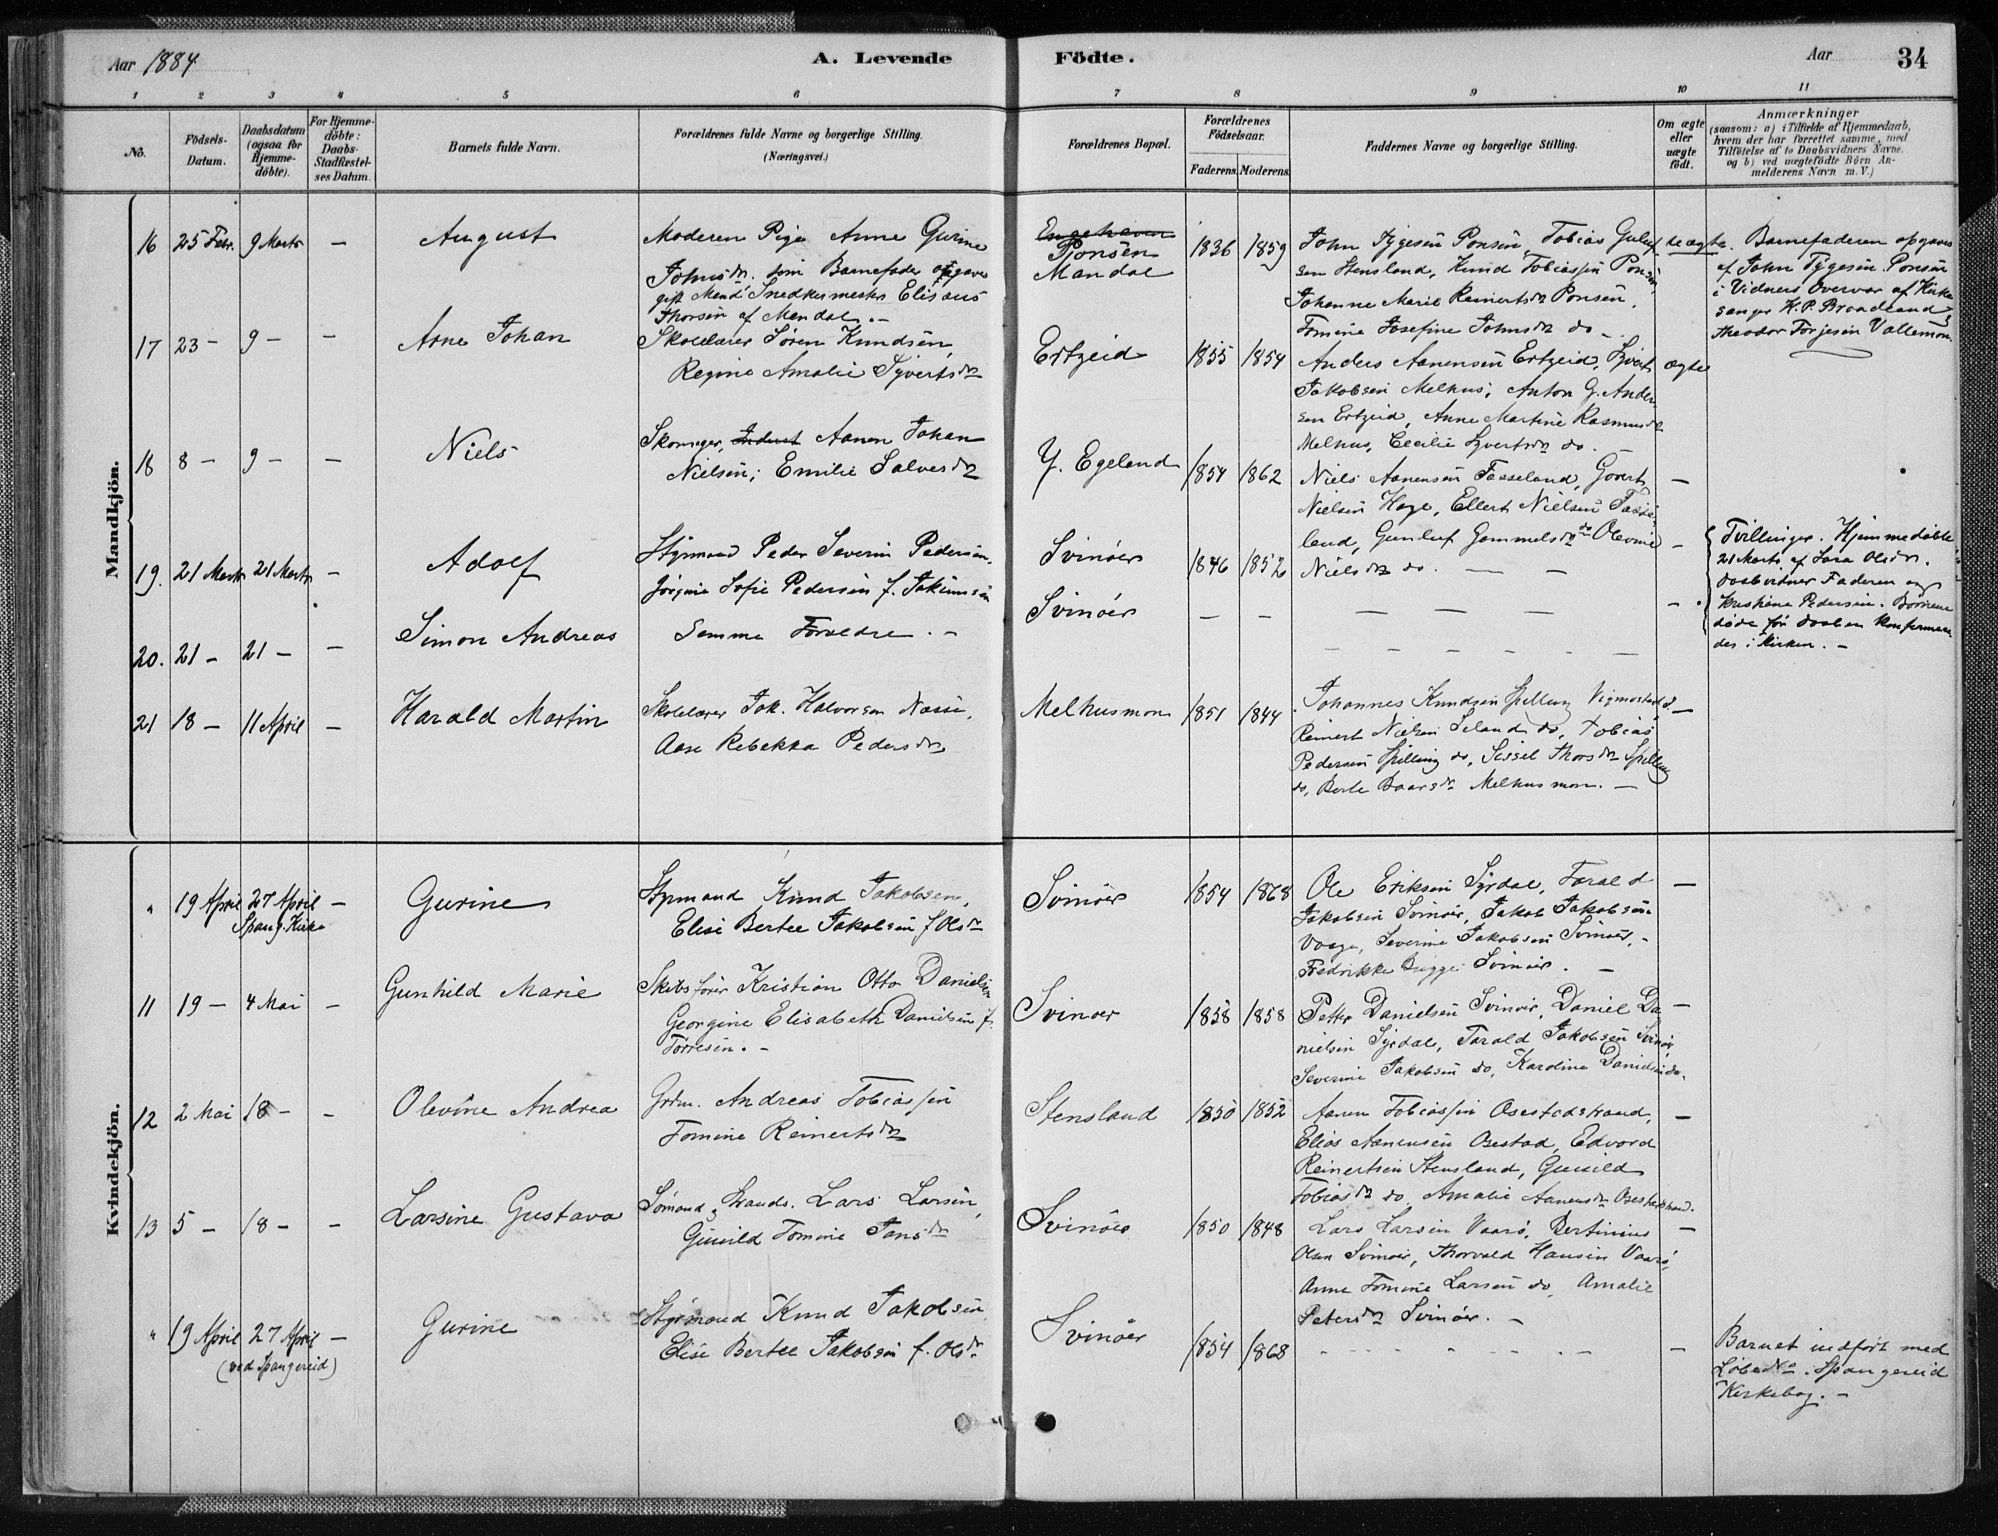 Aar 1884
A. Levende
Födte.
Aar
34
1 2 3 4 5 6 7 8 9 10 11
No.
Födsels-Datum.
Daabsdatum (ogsaa for Hjemme-döbte).
For Hjemme-döbte: Daabs-Stadfæstel-ses Datum.
Barnets fulde Navn.
Forældrenes fulde Navne og borgerlige Stilling.
(Næringsvei.)
Forældrenes Bopæl.
Forældrenes Födselsaar.
Faderens. Moderens.
Faddernes Navne og borgerlige Stilling.
Om ægte eller uægte födt.
Anmærkninger
(saasom: a) i Tilfælde af Hjemmedaab,
hvem der har forrettet samme, med
Tilföielse af to Daabsvidners Navne.
og b) ved uægtefödte Börn An-
melderens Navn m. V.)
Mandkjön.
16 25 Febr. 9 Marts – August
Moderen Pige Anne Gurine
Johnsdr. som Barnefader opgaves
gift Mand Snedkermester Elisæus
Thorsen af Mandal. –
Ponsen
Mandal
1836 1859
John Tygesen Ponsen, Tobias Guluf-
sen Stensland, Knud Tobiassen Ponsen,
Johanne Marie Reinertsdr Ponsen,
Tomine Josefine Johnsdr do –
uægte.
Barnefaderen opgaves
af John Tygesen Ponsen
i Vidners Overvær af Kirke-
sanger K. P. Braadland &
Theodor Torjesen Vallemon.
17 23 – 9 – – Arne Johan
Skolelærer Søren Knudsen,
Regine Amalie Syvertsdr
Ertzeid
1855 1854
Anders Aanensen Ertzeid, Syvert
Jakobsen Melhus, Anton G. Ander
sen Ertzeid, Anne Martine Rasmusdr
Melhus, Cecilie Syvertsdr do. –
ægte
18 8 – 9 – – Niels
Skomager, Aanen Johan
Nielsen; Emilie Salvesdr
Y. Egeland
1854 1862
Niels Aanensen Fasseland, Govert
Nielsen Hage, Ellert Nielsen Fasse-
land, Gunluf Gammelsdr do Olevine
Nielsdr do. – –
–
19. 21 Marts 21 Marts – Adolf
Styrmand Peder Severin Pedersen,
Jørgine Sofie Pedersen f. Jakimsen
Svinöer
1846 1852
–
Tvillinger. Hjemmedøbte
21 Marts af Sara Olsdr.
Daabvidner Faderen og
Kristiane Pedersen. Børnene
døde før Daaben konfirmeredes
i Kirken. –
20. 21 – 21 – – Simon Andreas
Samme Forældre. –
Svinöer
– –
21 18 – 11 April – Harald Martin
Skolelærer Jak. Halvorsen
Aase Rebekka Pedersdr
Melhusmon
1851 1844
Johannes Knudsen Spilling Vigmostad
Reinert Nielsen Seland do, Tobias
Pedersen Spilling do, Sissel Thorsdr Spilling
do, Berte Baarsdr Melhusmon. –
–
Kvindekjön.
" 19 April 27 April – Gurine
Spang. Kirke
Styrmand Knud Jakobsen,
Elise Bertee Jakobsen f. Olsdr
Svinöer
1854 1868
Ole Eriksen Syrdal, Tarald
Jakobsen Svinöer, Jakob Jakobsen
Vaage, Severine Jakobsen Svinöer, –
Fredrikke Bugge Svinöer. –
–
11 19 – 4 Mai – Gunhild Marie
Skibsfører Kristian Otto Danielsen
Georgine Elisabeth Danielsen f.
Tørresen. –
Svinöer
1858 1858
Petter Danielsen Svinöer, Daniel Da-
nielsen Syrdal, Tarald Jakobsen Svinör,
Severine Jakobsen do, Karoline Danielsen do.
–
12 2 Mai 18 – – Olevine Andrea
Grdm. Andreas Tobiassen
Tomine Reinertsdr
Stensland
1850 1852
Aanen Tobiassen Osestadstrand,
Elias Aanensen Osestad, Edvard
Reinertsen Stensland, Gunild
Tobiasdr do, Amalie Aanensdr Osestadstrand.
–
13 5 – 18 – – Larsine Gustava
Sømand & Strands. Lars Larsen,
Gunild Tomine Jansdr
Svinöer
1850 1848
Lars Larsen Vaarö, Bertinius
Olsen Svinöer, Thorvald Hansen Vaarö,
Anne Tomine Larsen do, Amalie
Petersdr Svinöer. –
–
" 19 April 27 April – Gurine
(ved Spangereid)
Styrmand Knud Jakobsen
Elise Bertee Jakobsen f. Olsdr
Svinöer
1854 1868
–
Barnet indført med
Løbe No i Spangereid
Kirkebog. –